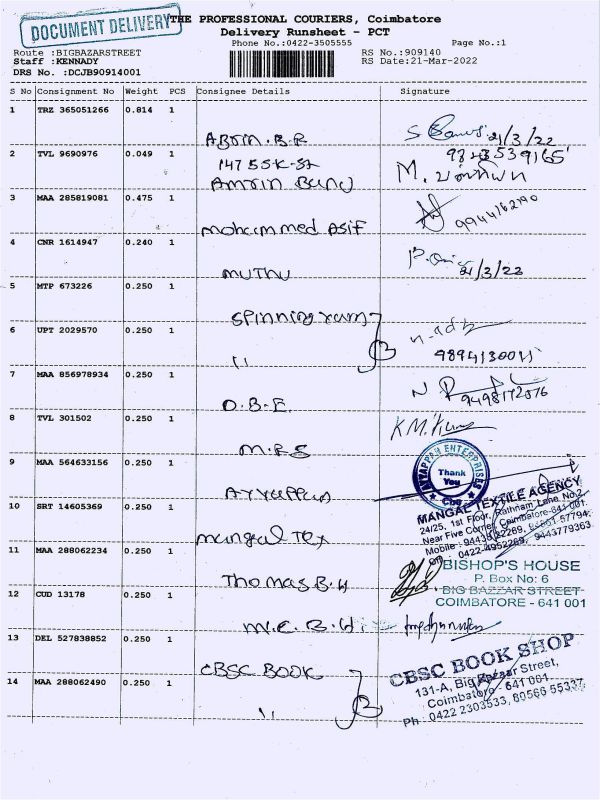 DOCUMENT DELIVERY
THE PROFESSIONAL COURIERS, Coimbatore
Delivery Runsheet - PCT
Phone No.:0422-3505555 Page No.:1
Route :BIGBAZARSTREET RS No.:909140
Staff :KENNADY RS Date:21-Mar-2022
DRS No. :DCJB90914001
S No Consignment No Weight PCS Consignee Details Signature
1 TRZ 365051266 0.814 1
21/3/22
2 TVL 9690976 0.049 1
147 55K-St
Amrin Banu M.
3 MAA 285819081 0.475 1
mohammed Asif
4 CNR 1614947 0.240 1
MUTHU 21/3/22
5 MTP 673226 0.250 1
spinning
6 UPT 2029570 0.250 1
"
7 MAA 856978934 0.250 1
O.B.E. 9498172576
8 TVL 301502 0.250 1
M.R.S K.M.Kumar
9 MAA 564633156 0.250 1
AYYAPPAN ENTERPRISES
Thank
You
Cbe
Ayyappan
10 SRT 14605369 0.250 1
MANGAL TEXTILE AGENCY
24/25, 1st Floor, Rathnam Lane No.2,
Near Five Corner, Coimbatore-641 001.
mangal Tex
11 MAA 288062234 0.250 1
BISHOP'S HOUSE
P. Box No: 6
BIG BAZZAR STREET
COIMBATORE - 641 001
Thomas B.H
12 CUD 13178 0.250 1
M.C.B.H
13 DEL 527838852 0.250 1
CBSC BOOK
CBSC BOOK SHOP
131-A, Big Bazaar Street,
Coimbatore - 641 001.
Ph : 0422 2303533, 80566 55337
14 MAA 288062490 0.250 1
"